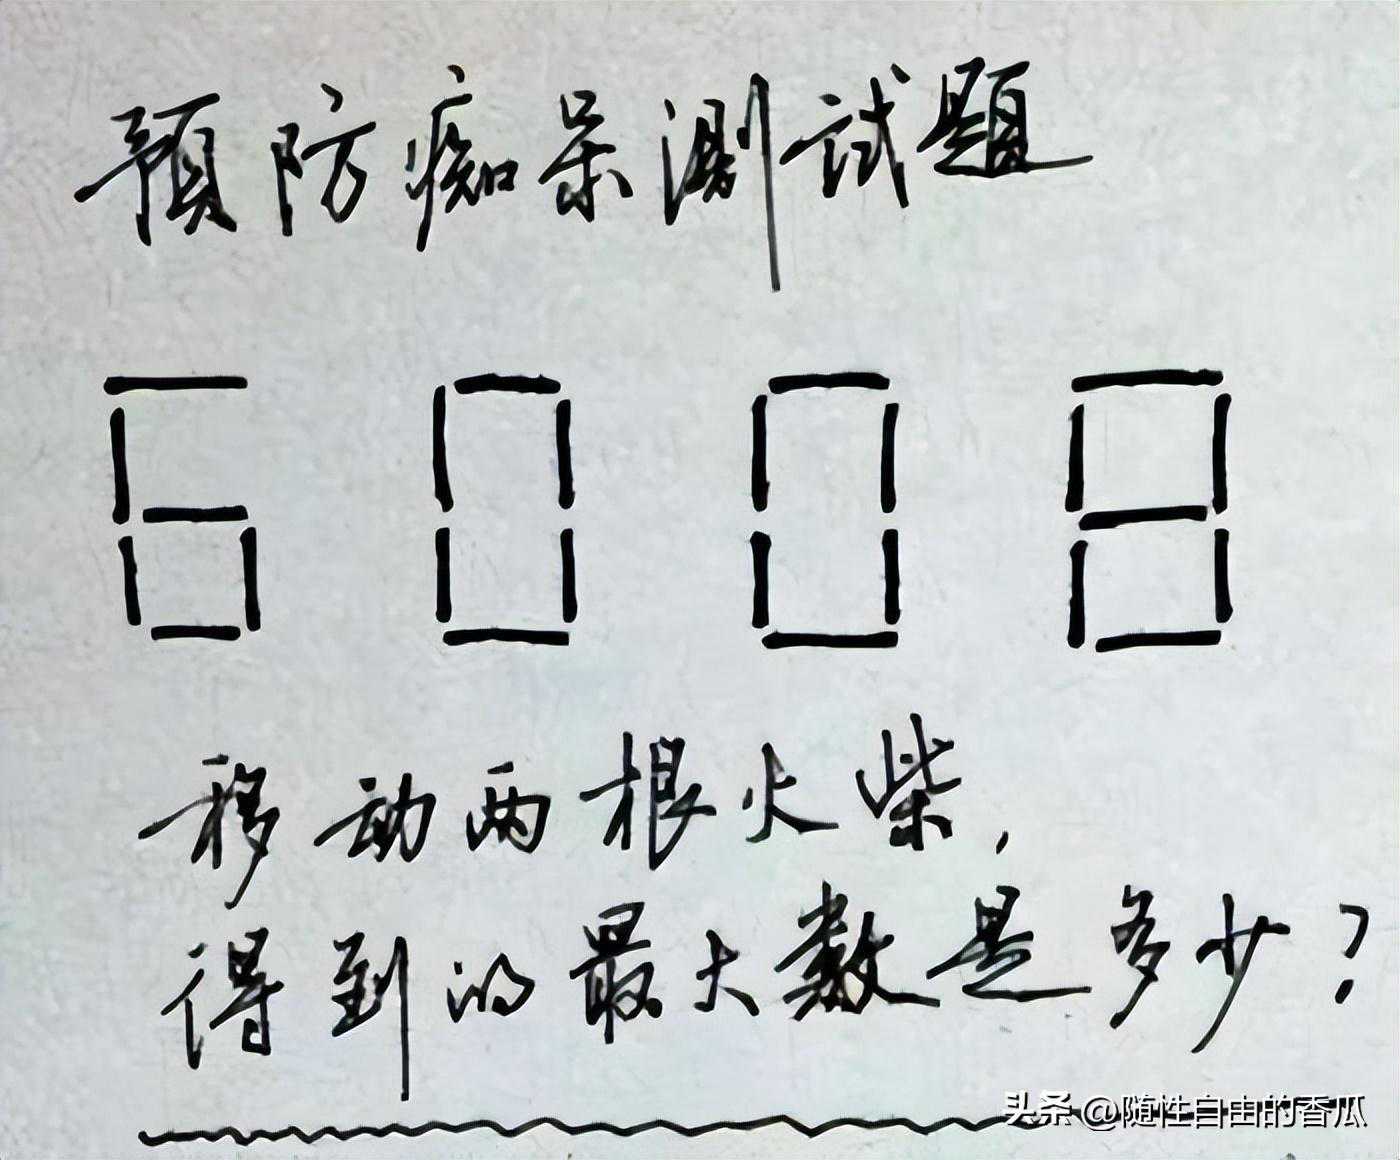 预防痴呆测试题
6008
移动两根火柴,
得到的最大数是多少?
头条 @随性自由的香瓜